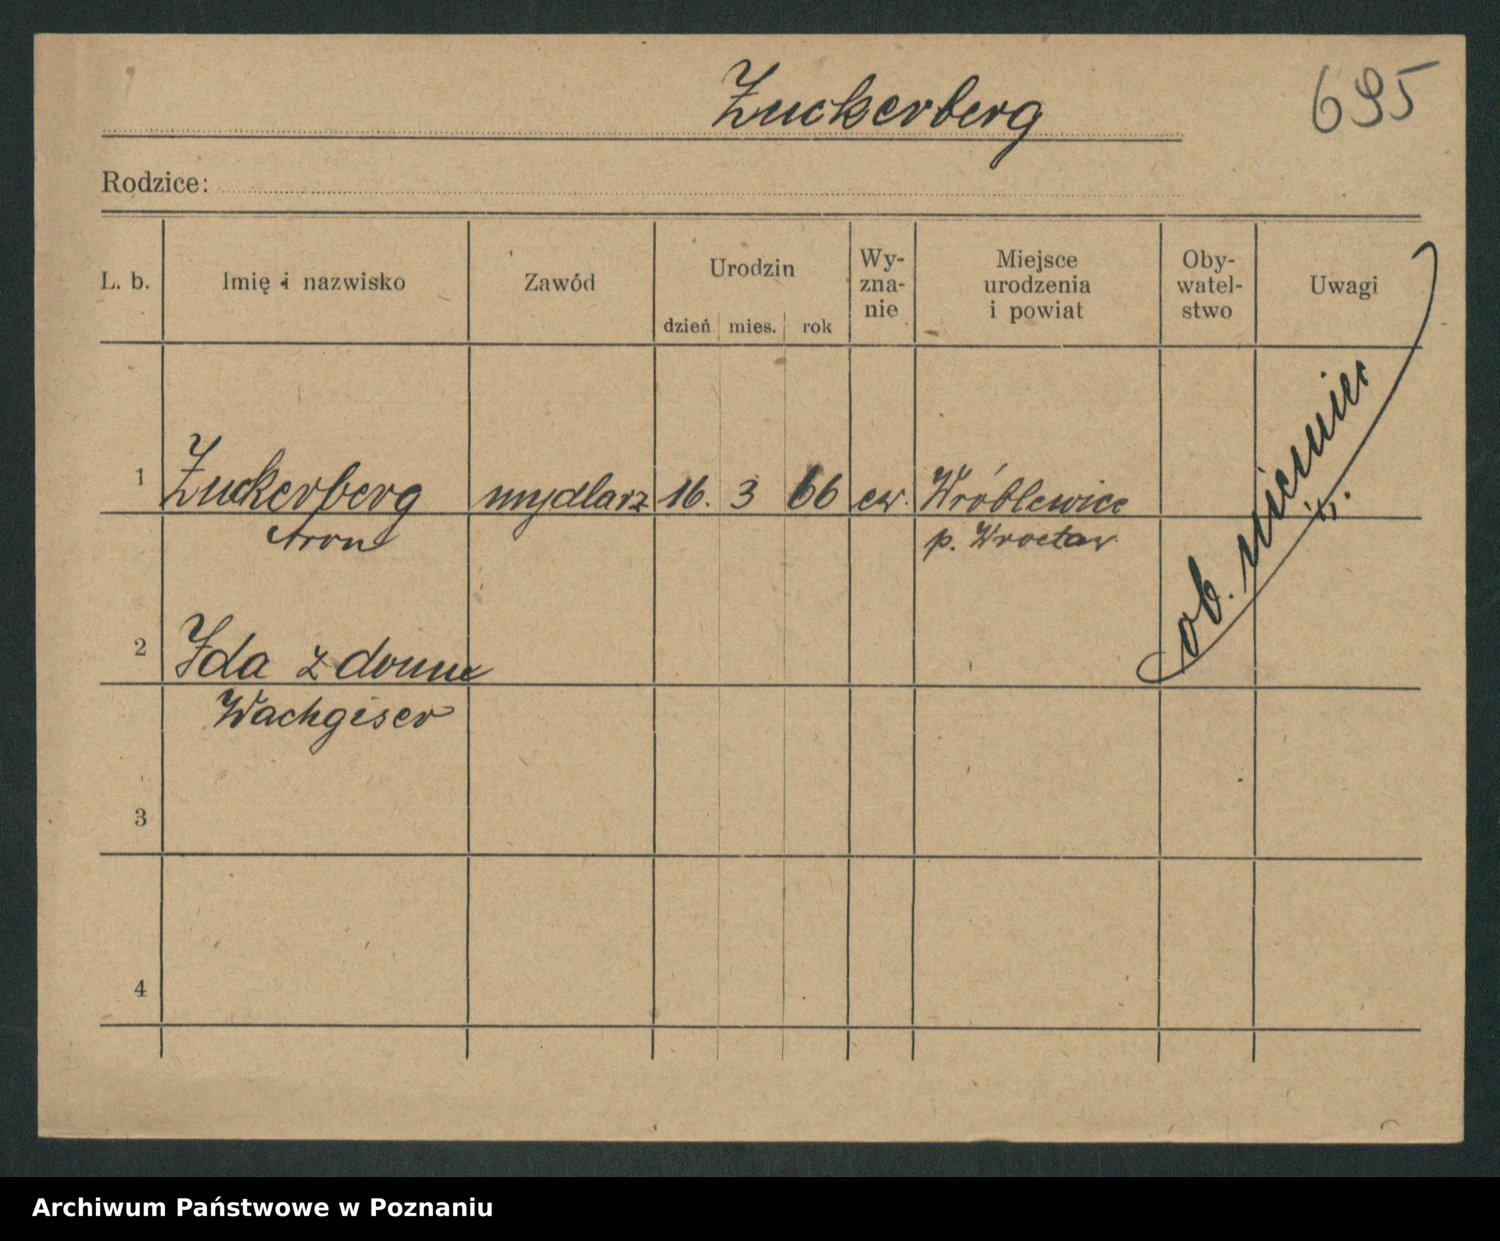 Zuckerberg
695
Rodzice:
L. b.
Imię i nazwisko
Zawód
Urodzin
dzień
mies.
rok
Wy-
zna-
nie
Miejsce
urodzenia
i powiat
Oby-
watel-
stwo
Uwagi
1 Zuckerberg mydlarz 16. 3 66 ew. Wróblewice
Aron p. Wrocław
ob. niemiec
2 Ida z domu
Wachgiser
3
4
Archiwum Państwowe w Poznaniu